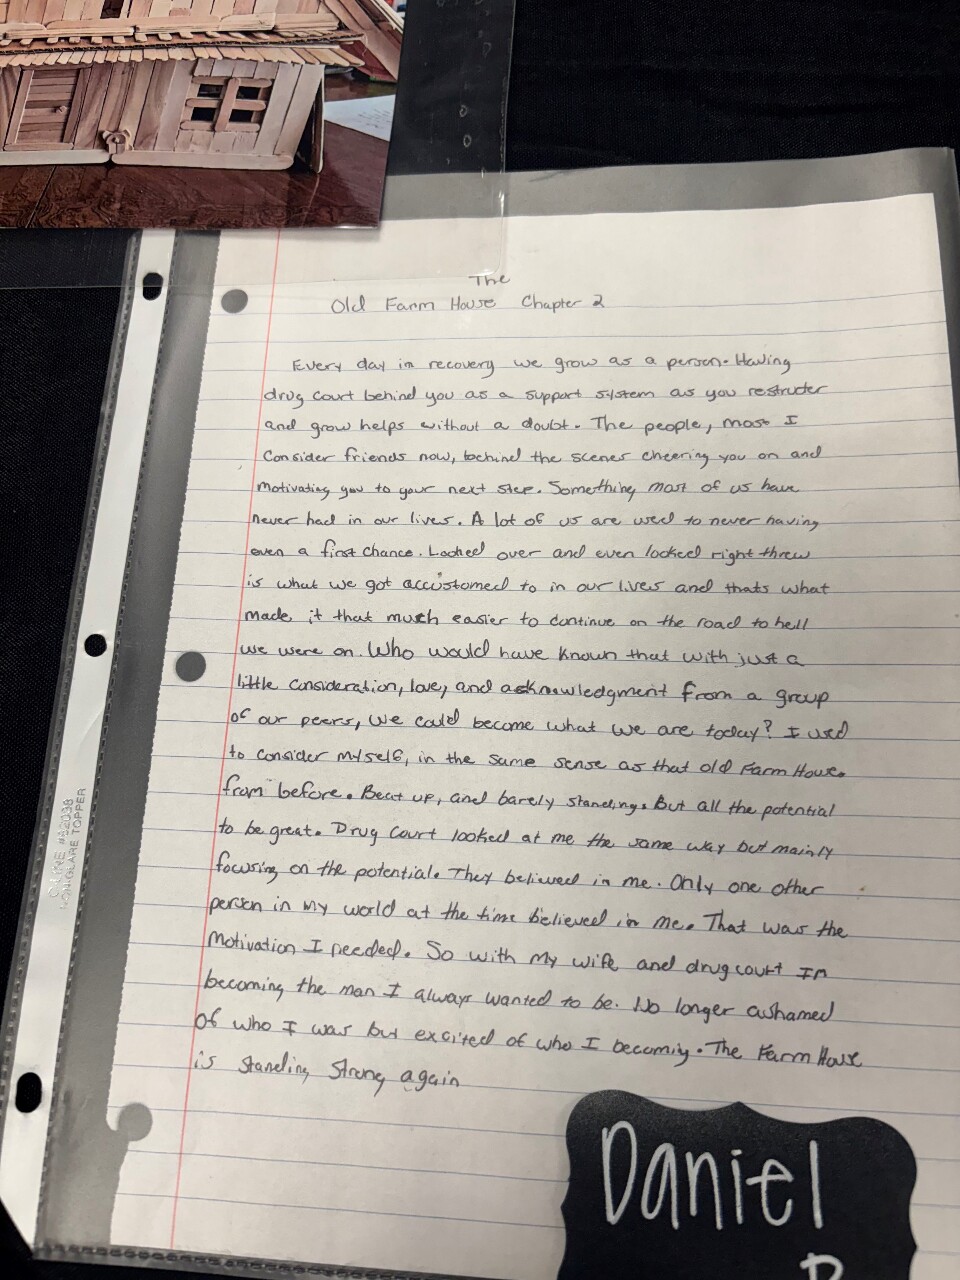 The
Old Farm House Chapter 2
Every day in recovery we grow as a person. Having
drug court behind you as a support system as you restructer
and grow helps without a doubt. The people, most I
Consider friends now, behind the scenes cheering you on and
motivating you to your next step. Something most of us have
never had in our lives. A lot of us are used to never having
even a first chance. Looked over and even looked right threw
is what we got accustomed to in our lives and thats what
made it that much easier to continue on the road to hell
we were on. Who would have known that with just a
little consideration, love, and acknowledgment from a group
of our peers, we could become what we are today? I used
to consider myself, in the same sense as that old Farm House
from before. Beat up, and barely standing. But all the potential
to be great. Drug Court looked at me the same way but mainly
focusing on the potential. They believed in me. Only one other
person in my world at the time believed in me. That was the
Motivation I needed. So with my wife and drug court Im
becoming the man I always wanted to be. No longer ashamed
of who I was but excited of who I becoming. The Farm House
is standing strong again
Daniel
C-LINE #62038
NON-GLARE TOPPER